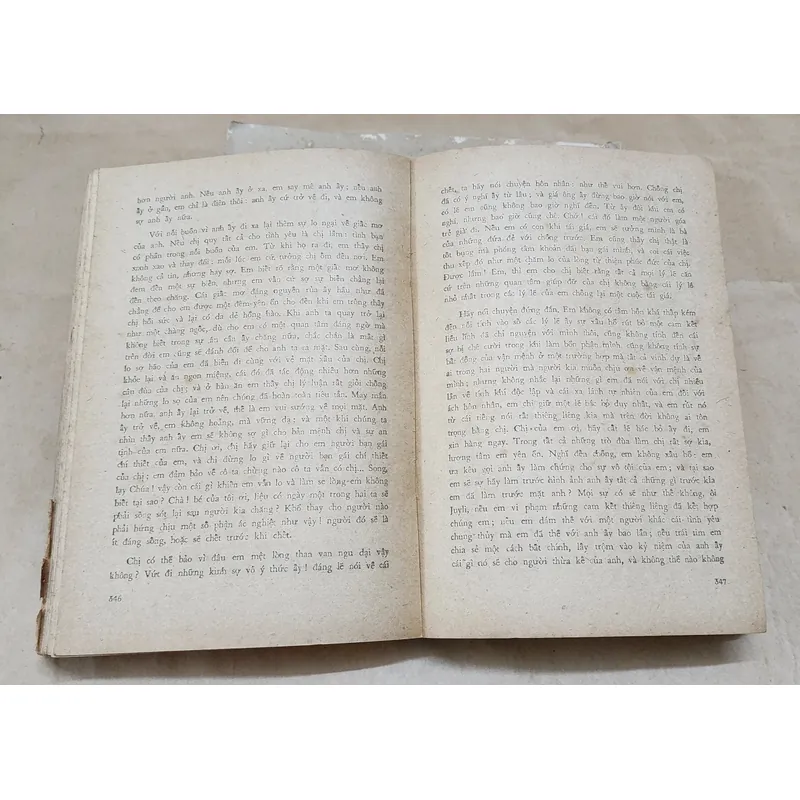 hơn người anh. Nếu anh ấy ở xa, em say mê anh ấy; nếu anh
ấy ở gần, em chỉ là điên thôi: anh ấy cứ trở về đi, và em không
sợ anh ấy nữa.
Với nỗi buồn vì anh ấy đi xa lại thêm sự lo ngại về giấc mơ
của anh. Nếu chị quy tất cả cho tình yêu là chị lầm: tình bạn
có phần trong nỗi buồn của em. Từ khi họ ra đi, em thấy chị
xanh xao và thay đổi: mỗi lúc em cứ tưởng chị ốm đến nơi. Em
không cả tin, nhưng hay sợ. Em biết rõ rằng một giấc mơ không
đem đến một sự biến, nhưng em vẫn cứ sợ sự biến chẳng lại
đến theo chăng. Cái giấc mơ đáng nguyền rủa ấy hầu như đã
chẳng để cho em được một đêm yên ổn cho đến khi em trông thấy
chị hồi sức và lại có da dẻ hồng hào. Khi anh ta quay trở lại
như một chàng ngốc, dù cho em có một quan tâm đáng ngờ mà
không biết trong sự ân cần ấy chăng nữa, thì chắc chắn là mắc gì
trên đời em cũng sẽ đánh đổi để cho anh ta ra mặt. Sau cùng, nỗi
lo sợ hão của em đã biến đi cùng với vẻ mặt xấu của chị. Chị
khỏe lại và ăn ngon miệng, cái đó đã tác động nhiều hơn những
câu đùa của chị; và ở bàn ăn em thấy chị lý luận rất giỏi chống
lại những lo sợ của em nên chúng đã hoàn toàn tiêu tán. May mắn
hơn nữa, anh ấy lại trở về, thế là em vui sướng về mọi mặt. Anh
ấy trở về, em không hoảng, mà vững dạ; và một khi chúng ta
nhìn thấy anh ấy em sẽ không sợ gì cho bản mệnh chị và sự an
tịnh của em nữa. Chị ơi, chị hãy giữ lại cho em người bạn gái
chí thiết của em, và chị đừng lo gì về người bạn gái chí thiết
của chị; em đảm bảo về cô ta chừng nào cô ta vẫn có chị... Song,
lạy Chúa! vậy còn cái gì khiến em vẫn lo và làm se lòng em không
biết tại sao? Chà! bé của tôi ơi, liệu có ngày một trong hai ta sẽ
phải sống sót lại sau người kia chăng? Khổ thay cho người nào
phải hứng chịu một số phận ác nghiệt như vậy! người đó sẽ là
ít đáng sống, hoặc sẽ chết trước khi chết.
Chị có thể bảo vì đâu em mệt lòng than van ngu dại vậy
không? Vứt đi những kinh sợ vô ý thức ấy! đáng lẽ nói về cái
346
chết, ta hãy nói chuyện hôn nhân: như thế vui hơn. Chồng chị
đã có ý nghĩ ấy từ lâu; và giá ông ấy đừng bao giờ nói với em,
có lẽ em cũng không bao giờ nghĩ đến. Từ ấy đôi khi em có
nghĩ, nhưng bao giờ cũng chê. Chớ! cái đó làm một người góa
trẻ già đi. Nếu em có con cái tái giá, em sẽ tưởng mình là bà
của những đứa đẻ với chồng trước. Em cũng thấy chị thật là
tốt bụng mà phóng tâm khoản đãi bạn của mình, và coi cái việc
thu xếp đó như một chăm lo của lòng từ thiện phúc đức của chị.
Được lắm! Thì em cho chị biết rằng tất cả mọi lý lẽ căn
cứ trên những quan tâm giúp đỡ của chị không bằng cái lý lẽ
nhỏ nhất trong các lý lẽ của em chống lại một cuộc tái giá.
Hãy nói chuyện đứng đắn. Em không có tâm hồn khá thấp kém
đến nỗi tính vào số các lý lẽ ấy sự xấu hổ rút bỏ một cam kết
liều lĩnh đã nguyện với mình thôi, cũng không tính đến cái
sợ bị chê cười trong khi làm bổn phận mình, cũng không tính sự
bất động của vận mệnh ở một trường hợp mà tất cả vinh dự là về
ai trong hai người mà người kia muốn chịu ơn về vận mệnh của
mình; nhưng không nhắc lại những gì em đã nói với chị nhiều
lần về tính khí độc lập và cái xa lánh tự nhiên của em đối với
ách hôn nhân, em chỉ giữ một lẽ bác bỏ duy nhất, và em rút nó
từ cái tiếng nói rất thiêng liêng kia mà trên đời không ai tôn
trọng bằng chị. Chị của em ơi, hãy cất lẽ bác bỏ ấy đi, em
xin hàng ngay. Trong tất cả những trò đùa làm chị rất sợ kia,
lương tâm em yên ổn. Nghĩ đến chồng, em không xấu hổ: em
ưa kêu gọi anh ấy làm chứng cho sự vô tội của em; và tại sao
em sẽ sợ hãy làm trước hình ảnh anh ấy tất cả những gì trước kia
em đã làm trước mặt anh? Mọi sự có sẽ như thế không, ôi
Juyli, nếu em vi phạm những cam kết thiêng liêng đã kết hợp
chúng em; nếu em dám thề với một người khác cái tình yêu
chung thủy mà em đã thề với anh ấy bao lần; nếu trái tim em
chia sẻ một cách bất thình, lấy trộm vào kỷ niệm của anh ấy
cái gì nó sẽ cho người thừa kế của anh, và không thể nào không
347